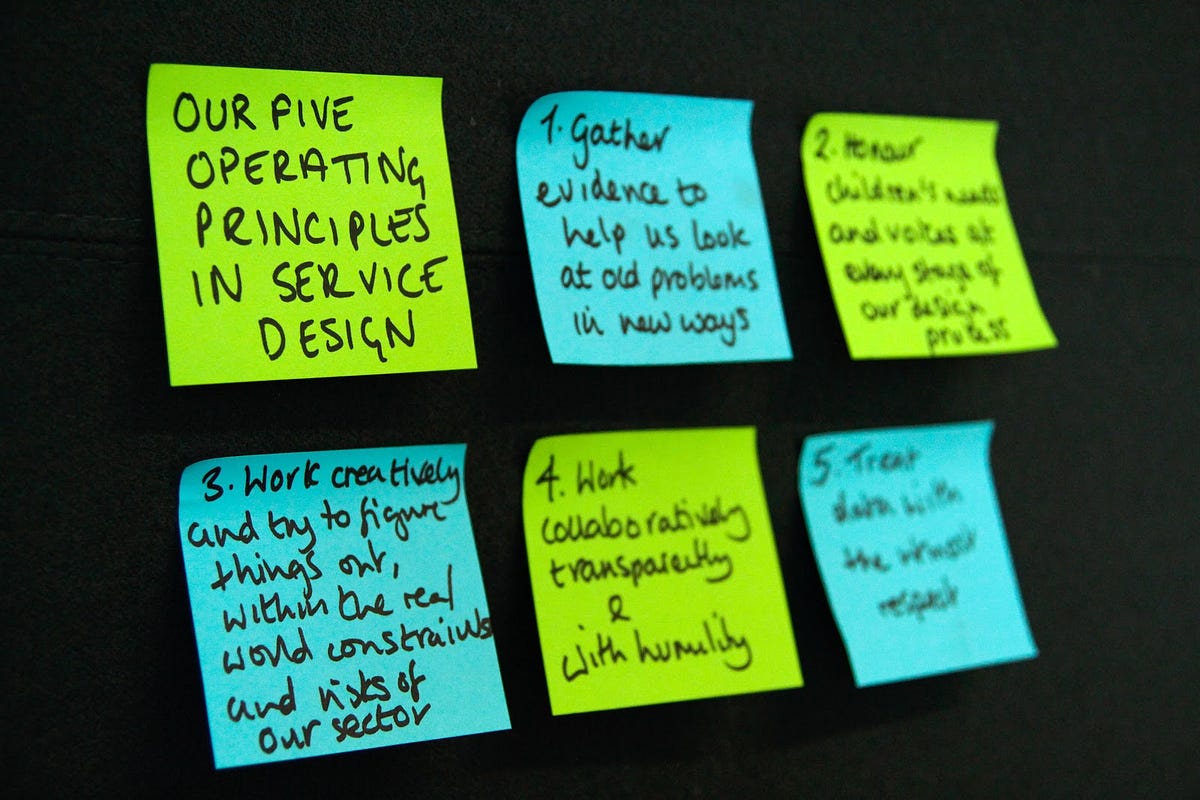 OUR FIVE
OPERATING
PRINCIPLES
IN SERVICE
DESIGN
1. Gather
evidence to
help us look
at old problems
in new ways
2. Honour
children's needs
and voices at
every stage of
our design
process
3. Work creatively
and try to figure
things out,
within the real
world constraints
and risks of
our sector
4. Work
collaboratively
transparently
&
with humility
5. Treat
data with
the utmost
respect